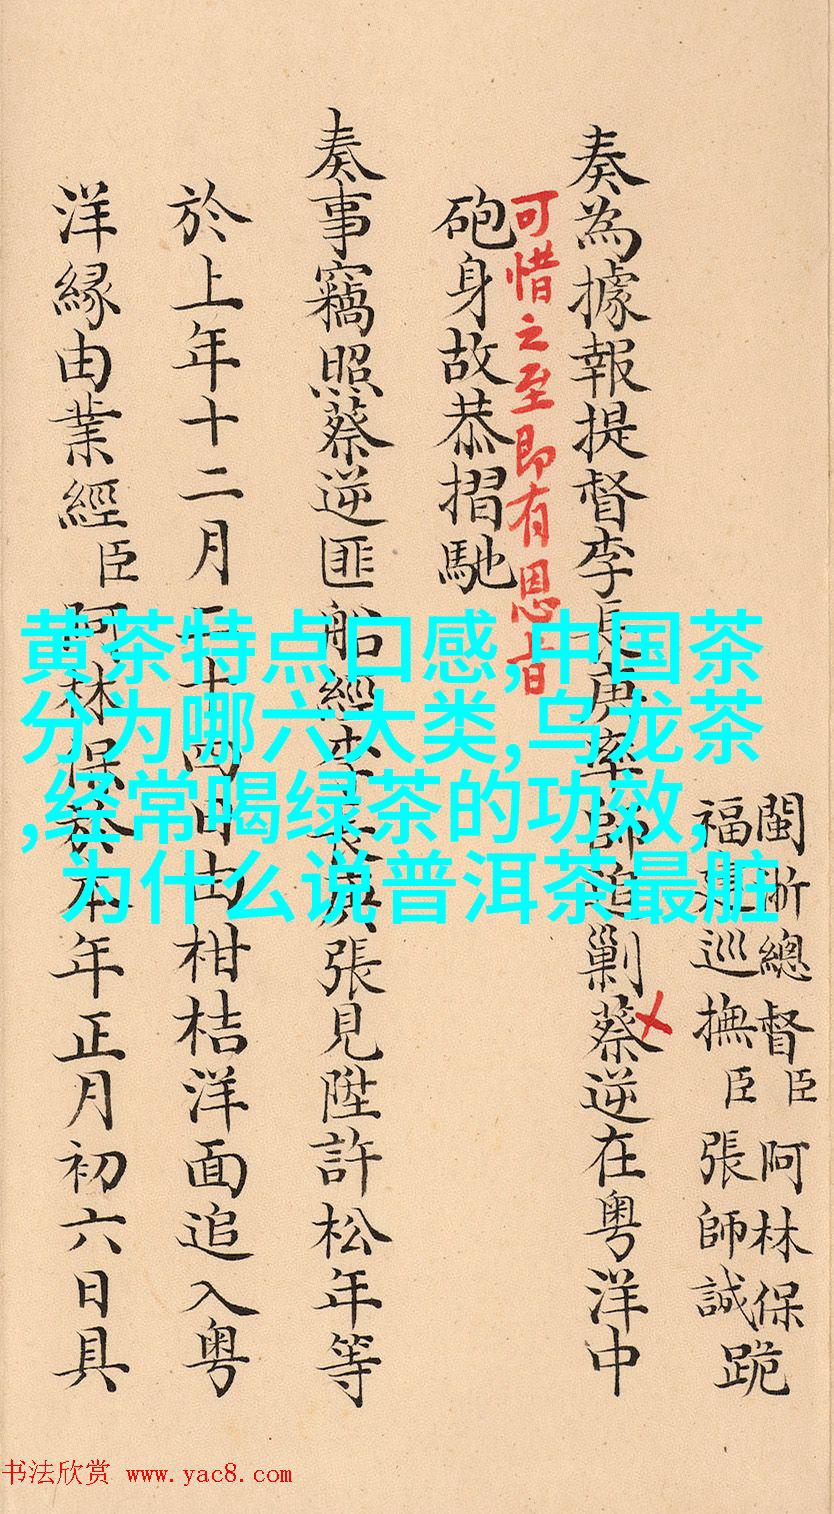 閩浙總督臣阿林保
福建巡撫臣張師誠跪
奏為據報提督李長庚率師追剿蔡逆在粵洋中
可惜之至即有恩旨
砲身故恭摺馳
奏事竊照蔡逆匪船經李長庚張見陞許松年等
於上年十二月二十四日由柑桔洋面追入粵
洋緣由業經臣阿林保於本年正月初六日具
黄茶特点口感,中国茶
分为哪六大类,乌龙茶
,经常喝绿茶的功效,
为什么说普洱茶最脏
书法欣赏 www.yac8.com